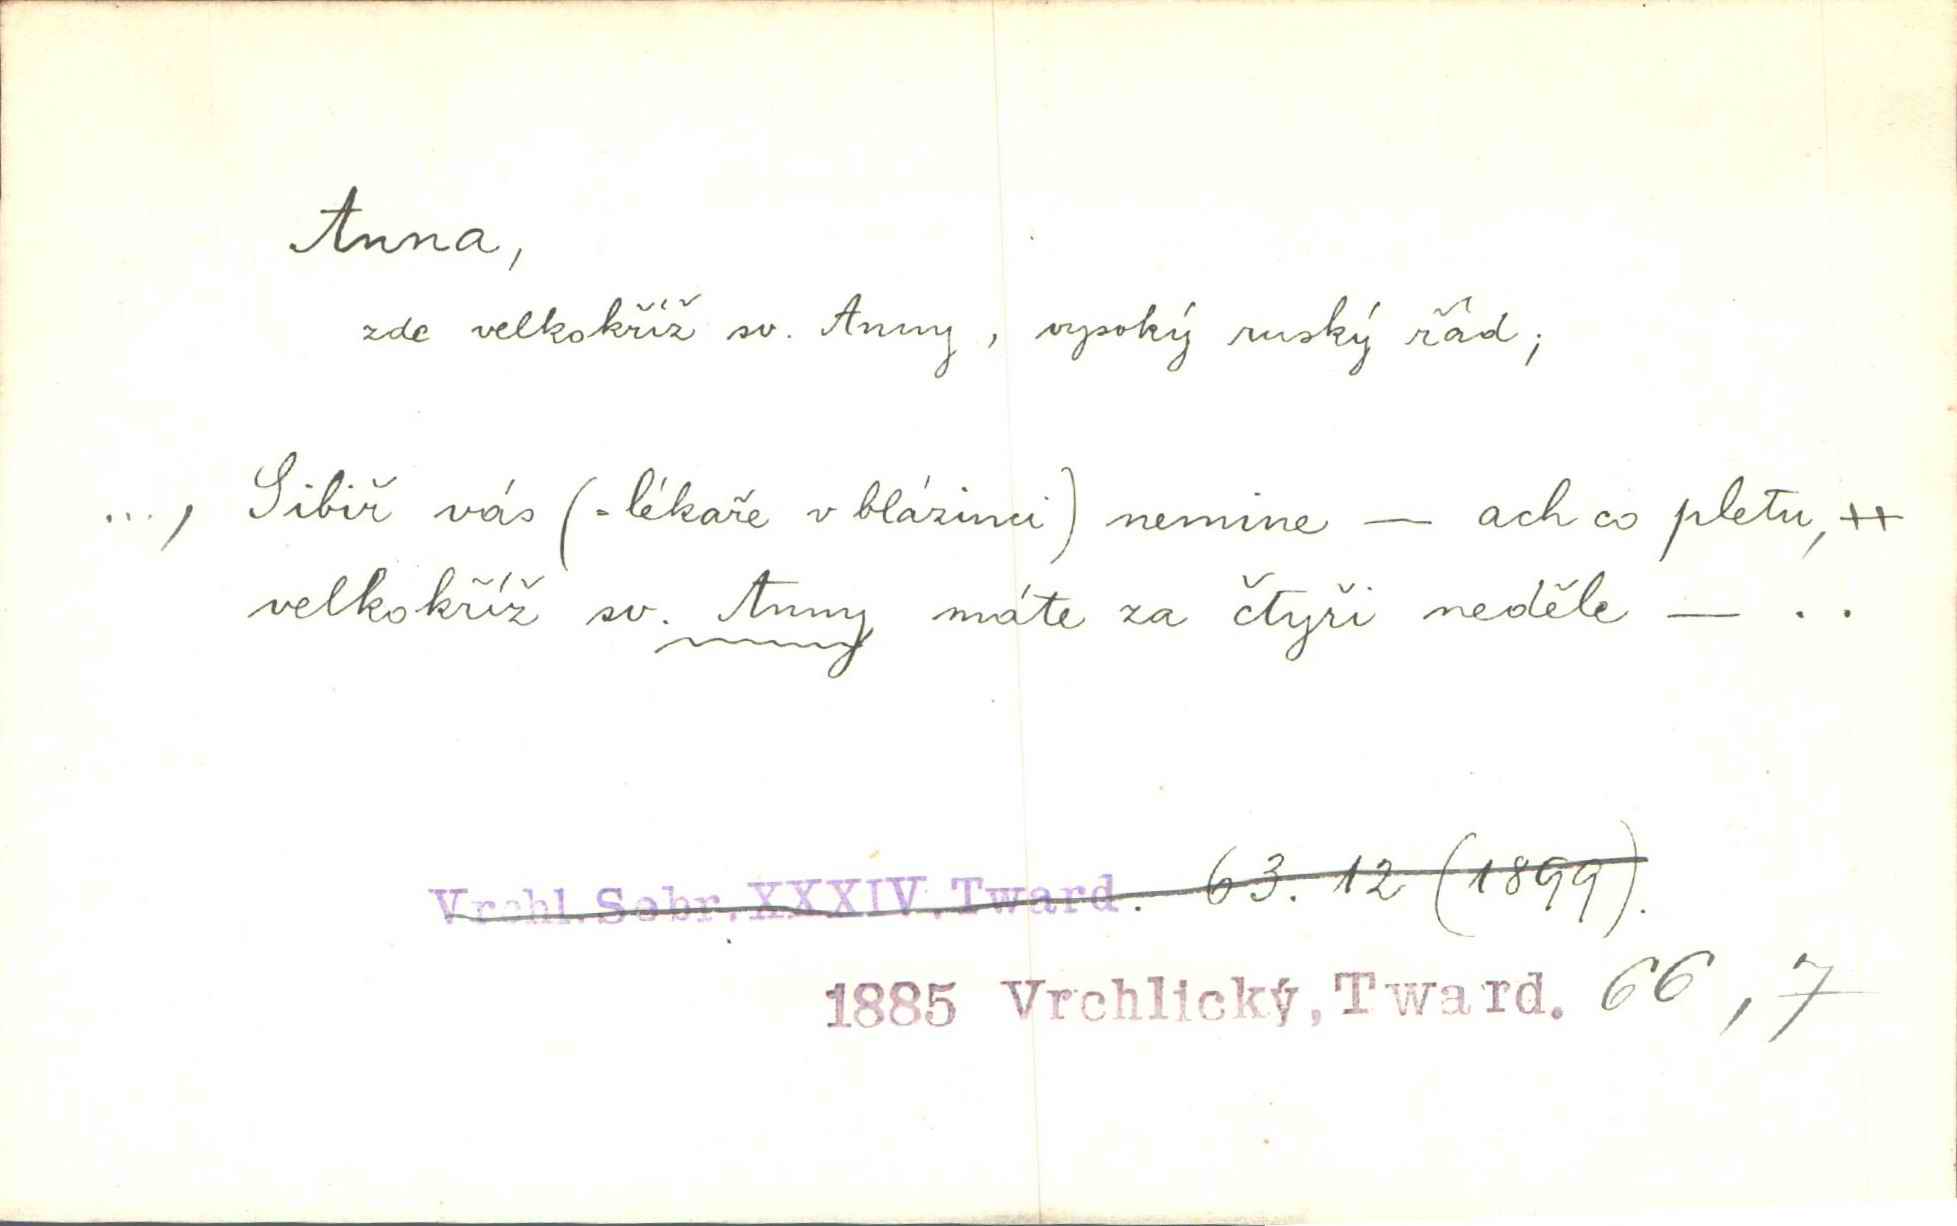 Anna,
zde velkokříž sv. Anny, vysoký ruský řád;
..., Sibiř vás (= lékaře v blázinci) nemine — ach co pletu, ++
velkokříž sv. Anny máte za čtyři neděle — . .
Vrchl. Sebr. XXXIV. Tward. 63. 12 (1899).
1885 Vrchlický, Tward. 66, 7